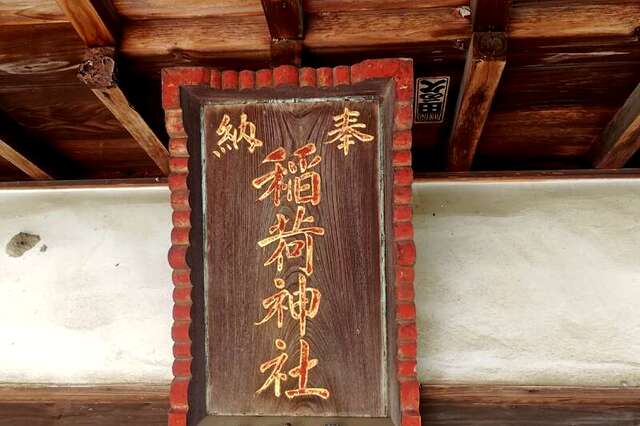 奉納
稲荷神社